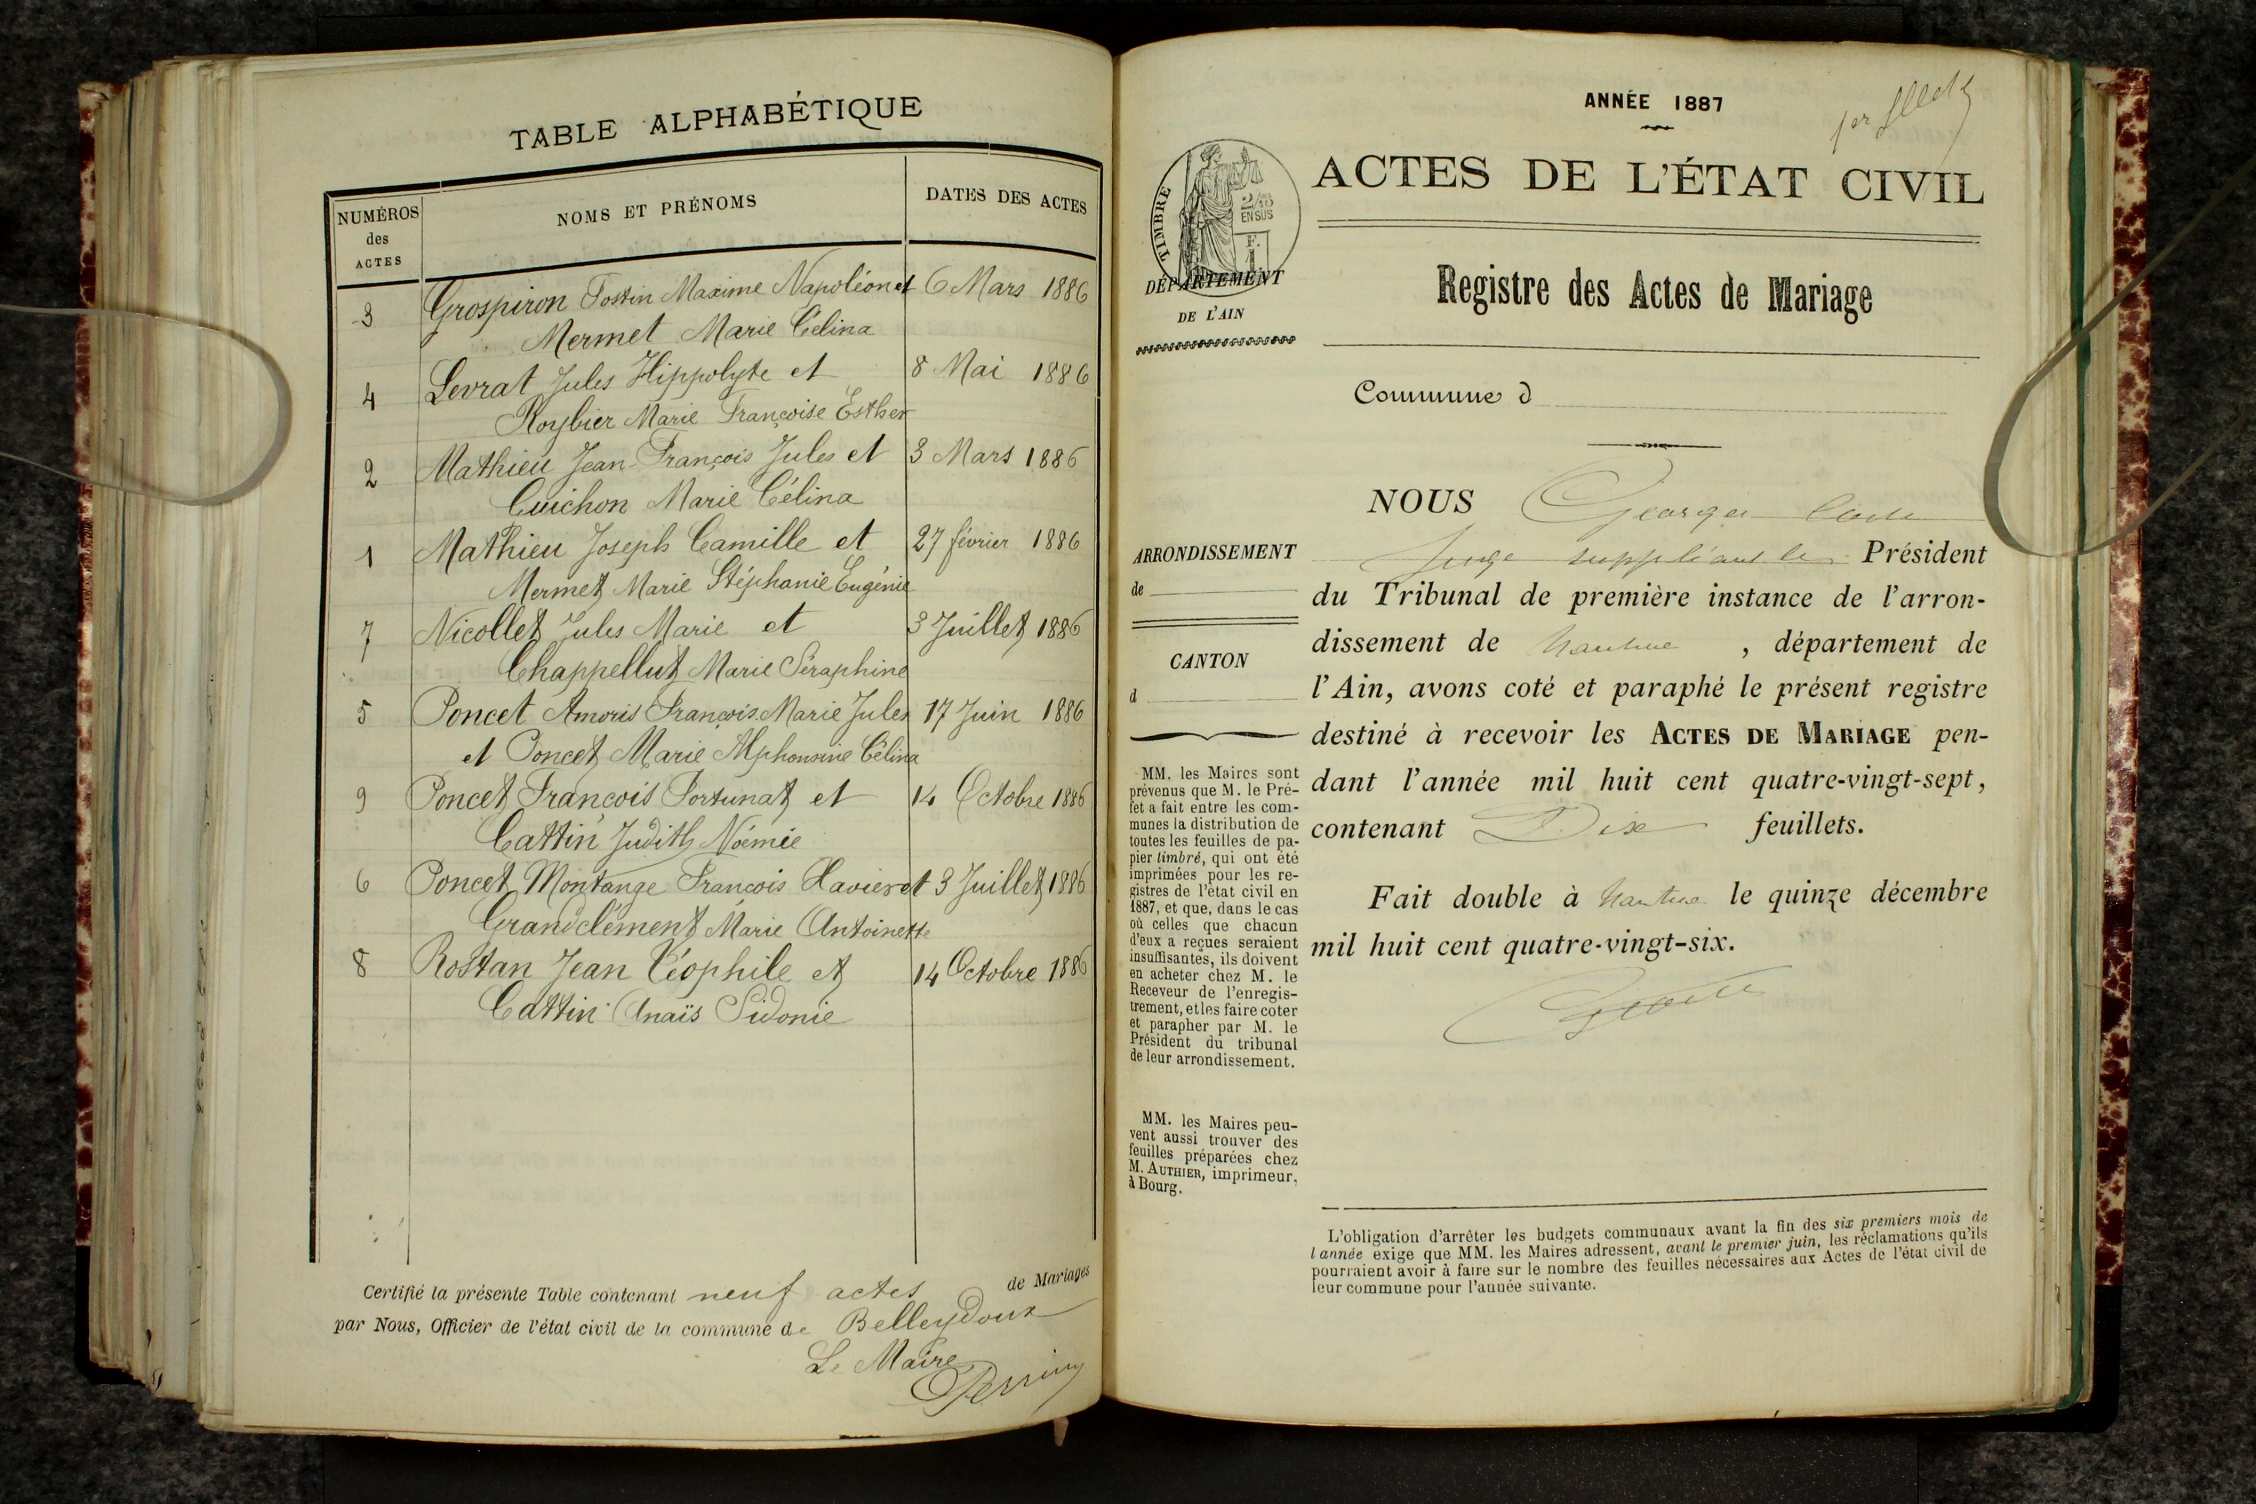 TABLE ALPHABÉTIQUE
NUMÉROS des ACTES
NOMS ET PRÉNOMS
DATES DES ACTES
3 Grospiron Maxime Napoléon et 6 Mars 1886
Mermet Marie Célina
4 Levrat Jules Hippolyte et 8 Mai 1886
Roybier Marie Françoise Esther
2 Mathieu Jean-François Jules et 3 Mars 1886
Guichon Marie Célina
1 Mathieu Joseph Camille et 27 février 1886
Mermet Marie Stéphanie Eugénie
7 Nicollet Jules Marie et 3 Juillet 1886
Chappelluz Marie Séraphine
5 Poncet Amoris François Marie Jules 17 Juin 1886
et Poncet Marie Alphonsine Célina
9 Poncet François Fortunat et 14 Octobre 1886
Cattin Judith Noémie
6 Poncet Montange François Xavier et 3 Juillet 1886
Grandclément Marie Antoinette
8 Rostan Jean Téophile et 14 Octobre 1886
Cattin Anaïs Sidonie
Certifié la présente Table contenant neuf actes de Mariages
par Nous, Officier de l'état civil de la commune de Belleydoux
Le Maire
ANNÉE 1887
1er
ACTES DE L'ÉTAT CIVIL
TIMBRE
2/10
EN SUS
F.
1
DÉPARTEMENT
DE L'AIN
Registre des Actes de Mariage
Commune d
NOUS Georges
Juge suppléant le Président
du Tribunal de première instance de l'arron-
dissement de Nantua, département de
l'Ain, avons coté et paraphé le présent registre
destiné à recevoir les ACTES DE MARIAGE pen-
dant l'année mil huit cent quatre-vingt-sept,
contenant Dix feuillets.
Fait double à Nantua le quinze décembre
mil huit cent quatre-vingt-six.
ARRONDISSEMENT
de
CANTON
d
MM. les Maires sont
prévenus que M. le Pré-
fet a fait entre les com-
munes la distribution de
toutes les feuilles de pa-
pier timbré, qui ont été
imprimées pour les re-
gistres de l'état civil en
1887, et que, dans le cas
où celles que chacun
d'eux a reçues seraient
insuffisantes, ils doivent
en acheter chez M. le
Receveur de l'enregis-
trement, et les faire coter
et parapher par M. le
Président du tribunal
de leur arrondissement.
MM. les Maires peu-
vent aussi trouver des
feuilles préparées chez
M. AUTHIER, imprimeur,
à Bourg.
L'obligation d'arrêter les budgets communaux avant la fin des six premiers mois de
l'année exige que MM. les Maires adressent, avant le premier juin, les réclamations qu'ils
pourraient avoir à faire sur le nombre des feuilles nécessaires aux Actes de l'état civil de
leur commune pour l'année suivante.